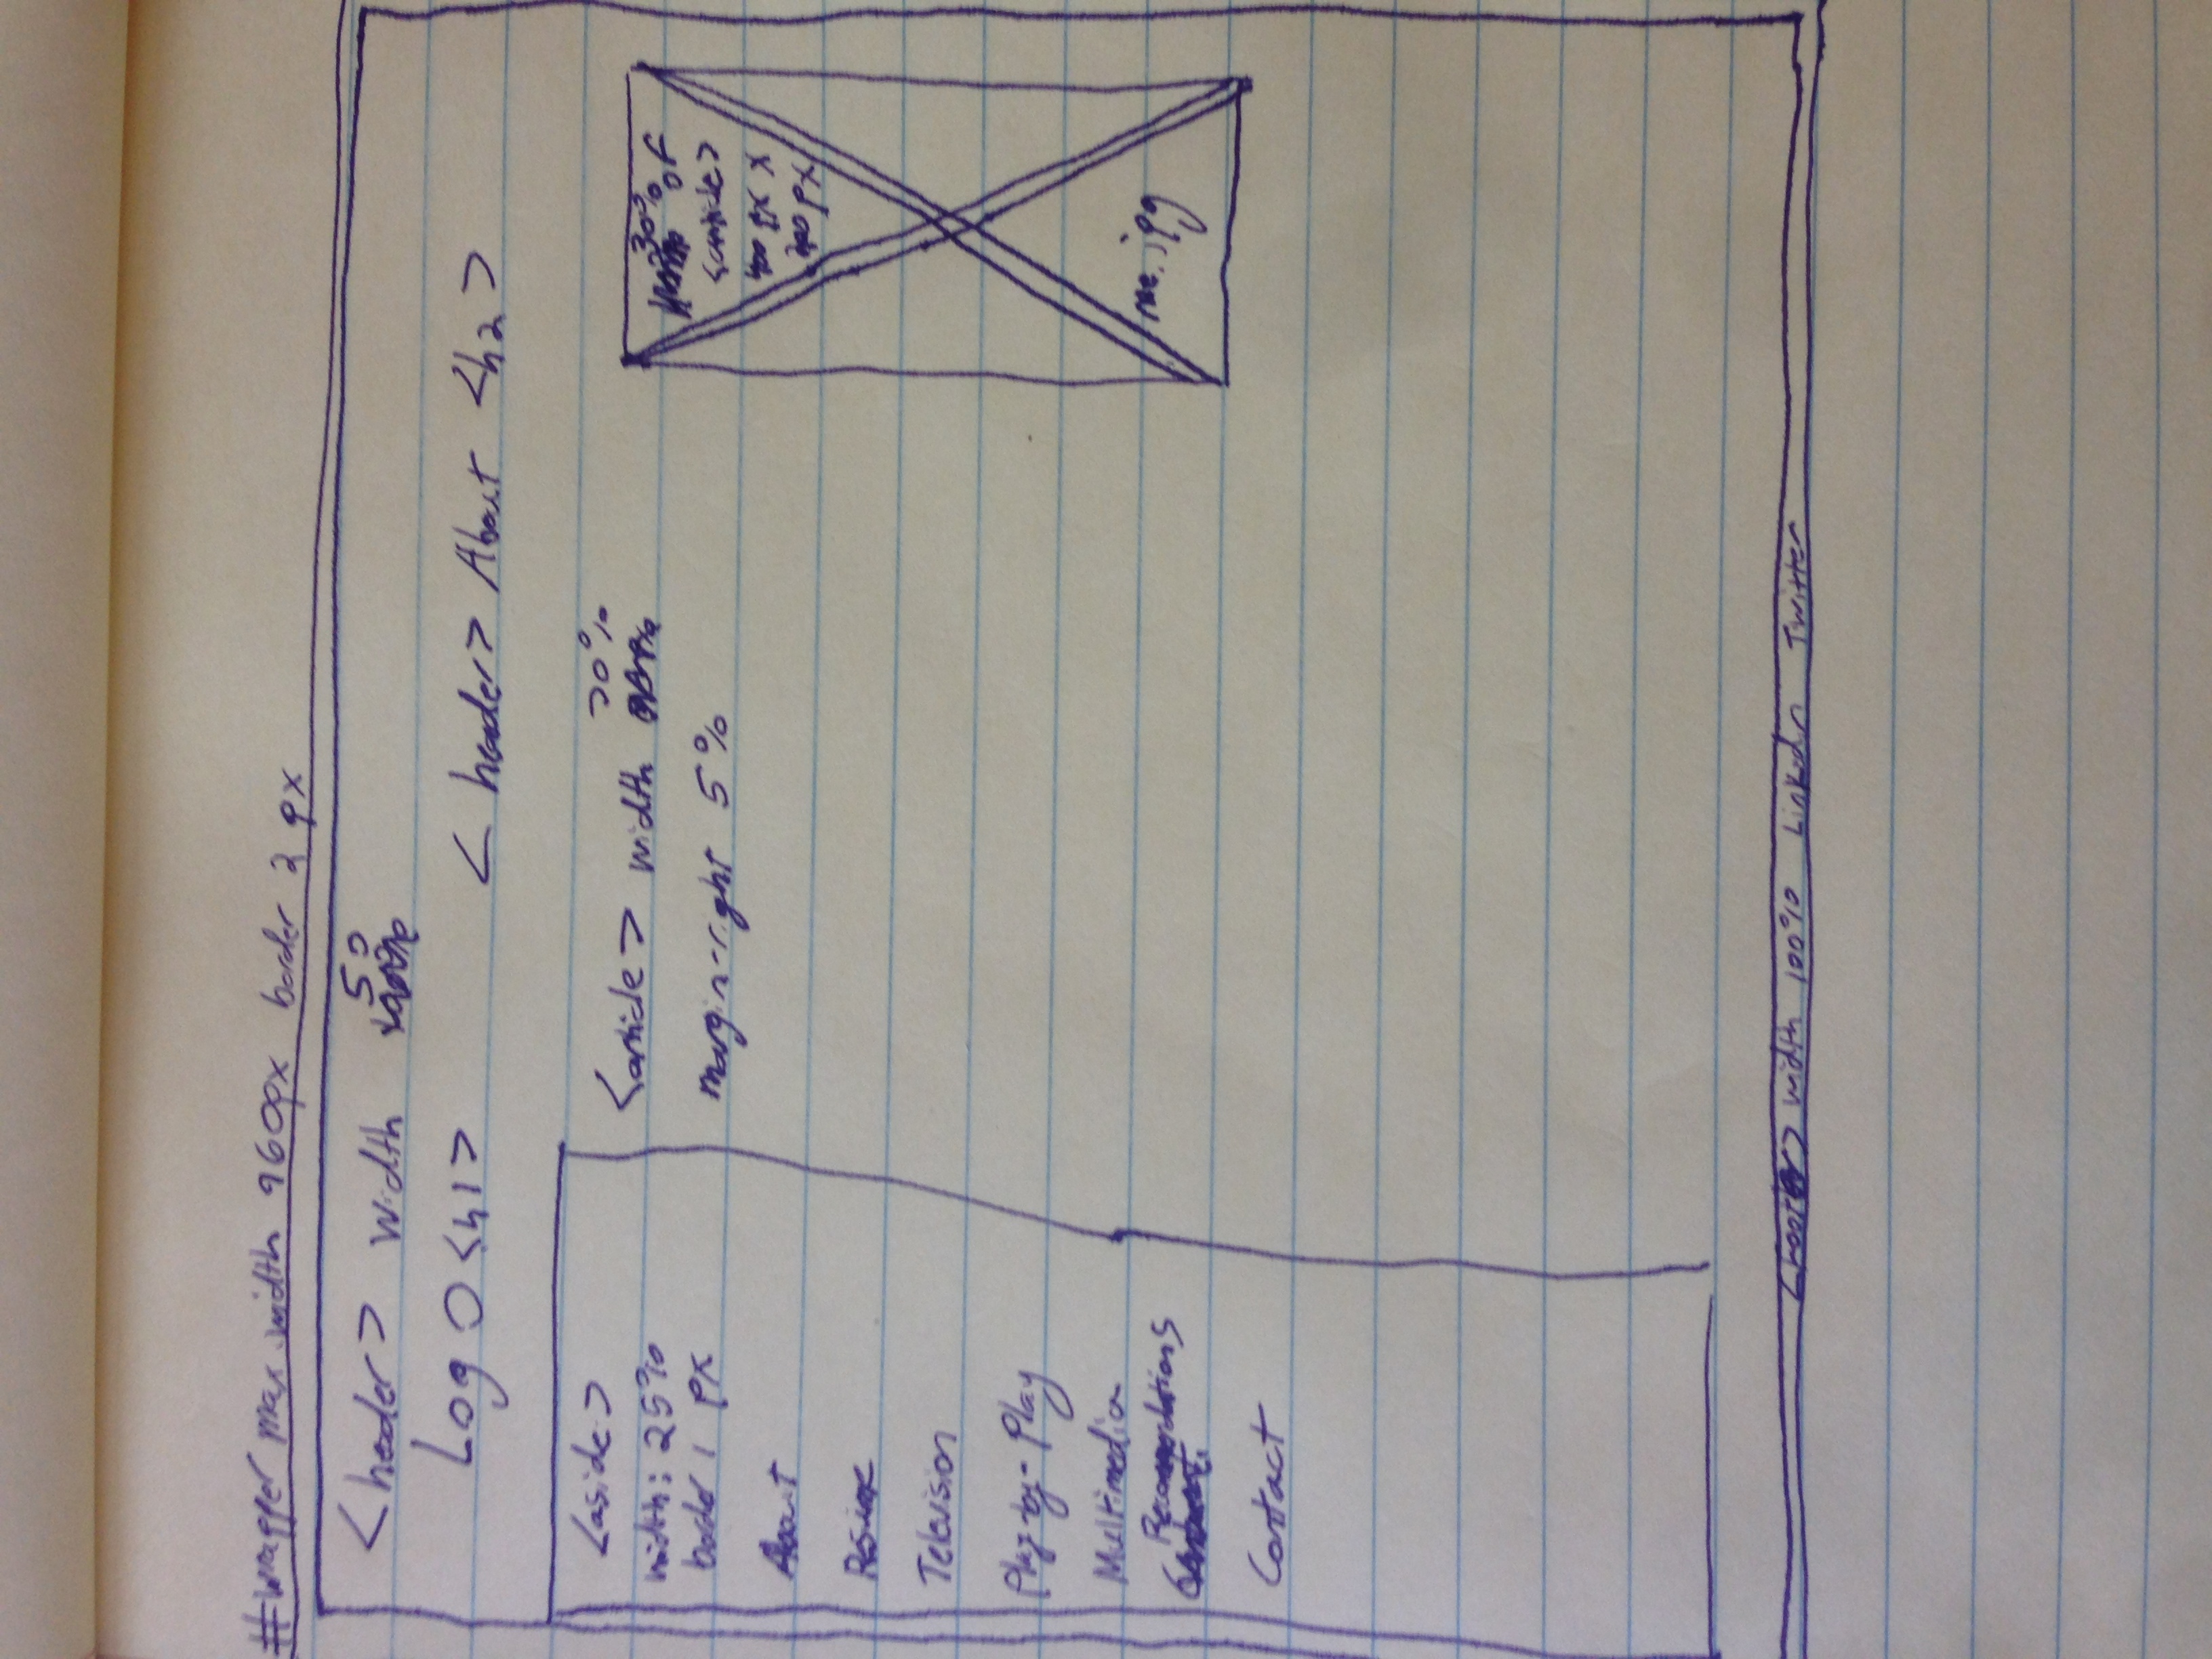 #wrapper max width 960px border 2 px
<header> width 50
Logo <h1>
<header> About <h2>
<aside>
width: 25%
border 1 px
About
Resume
Television
Play-by-Play
Multimedia
Recommendations
Contact
<article> width 70%
margin-right 5%
30% of
<article>
400 px x
200 px
me.jpg
<footer> width 100% Linkedin Twitter